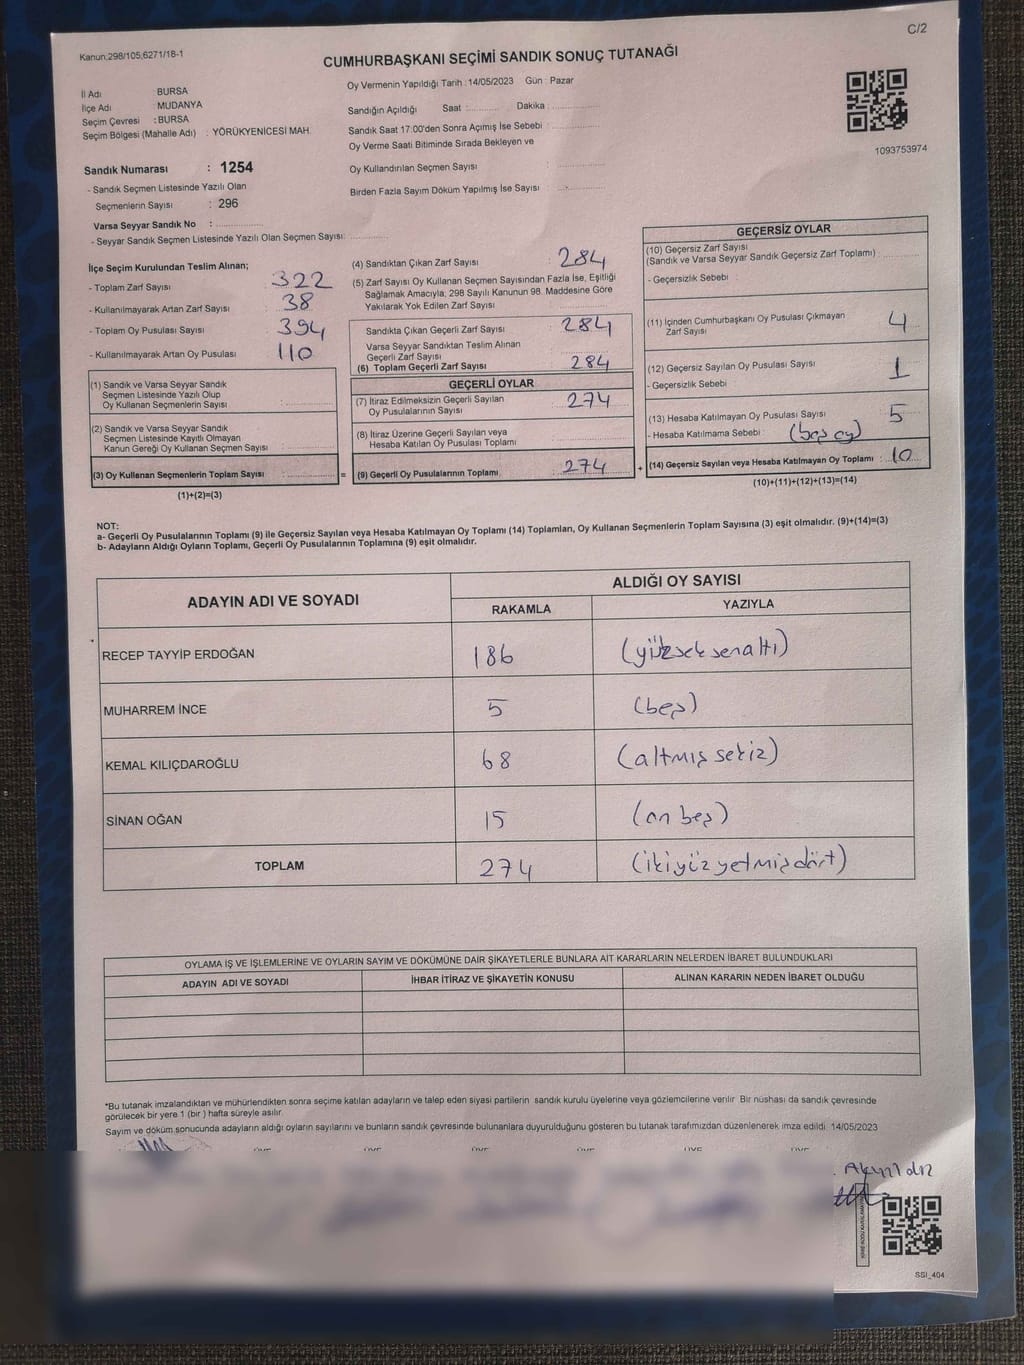 C/2
Kanun.298/105,6271/18-1
CUMHURBAŞKANI SEÇİMİ SANDIK SONUÇ TUTANAĞI
Oy Vermenin Yapıldığı Tarih : 14/05/2023 Gün : Pazar
İl Adı BURSA
İlçe Adı MUDANYA
Seçim Çevresi : BURSA
Seçim Bölgesi (Mahalle Adı) : YÖRÜKYENİCESİ MAH.
Sandık Numarası : 1254
- Sandık Seçmen Listesinde Yazılı Olan
Seçmenlerin Sayısı : 296
Varsa Seyyar Sandık No :
- Seyyar Sandık Seçmen Listesinde Yazılı Olan Seçmen Sayısı:
Sandığın Açıldığı Saat : Dakika :
Sandık Saat 17:00'den Sonra Açımış İse Sebebi :
Oy Verme Saati Bitiminde Sırada Bekleyen ve
Oy Kullandırılan Seçmen Sayısı :
Birden Fazla Sayım Döküm Yapılmış İse Sayısı :
1093753974
İlçe Seçim Kurulundan Teslim Alınan;
- Toplam Zarf Sayısı 322
- Kullanılmayarak Artan Zarf Sayısı 38
- Toplam Oy Pusulası Sayısı 394
- Kullanılmayarak Artan Oy Pusulası 110
(1) Sandık ve Varsa Seyyar Sandık
Seçmen Listesinde Yazılı Olup
Oy Kullanan Seçmenlerin Sayısı :
(2) Sandık ve Varsa Seyyar Sandık
Seçmen Listesinde Kayıtlı Olmayan
Kanun Gereği Oy Kullanan Seçmen Sayısı :
(3) Oy Kullanan Seçmenlerin Toplam Sayısı : =
(1)+(2)=(3)
(4) Sandıktan Çıkan Zarf Sayısı : 284
(5) Zarf Sayısı Oy Kullanan Seçmen Sayısından Fazla İse, Eşitliği
Sağlamak Amacıyla, 298 Sayılı Kanunun 98. Maddesine Göre
Yakılarak Yok Edilen Zarf Sayısı :
Sandıkta Çıkan Geçerli Zarf Sayısı : 284
Varsa Seyyar Sandıktan Teslim Alınan
Geçerli Zarf Sayısı
(6) Toplam Geçerli Zarf Sayısı : 284
GEÇERLİ OYLAR
(7) İtiraz Edilmeksizin Geçerli Sayılan
Oy Pusulalarının Sayısı : 274
(8) İtiraz Üzerine Geçerli Sayılan veya
Hesaba Katılan Oy Pusulası Toplamı :
(9) Geçerli Oy Pusulalarının Toplamı : 274 +
GEÇERSİZ OYLAR
(10) Geçersiz Zarf Sayısı
(Sandık ve Varsa Seyyar Sandık Geçersiz Zarf Toplamı) :
- Geçersizlik Sebebi :
(11) İçinden Cumhurbaşkanı Oy Pusulası Çıkmayan
Zarf Sayısı : 4
(12) Geçersiz Sayılan Oy Pusulası Sayısı : 1
- Geçersizlik Sebebi :
(13) Hesaba Katılmayan Oy Pusulası Sayısı : 5
- Hesaba Katılmama Sebebi : (boş oy)
(14) Geçersiz Sayılan veya Hesaba Katılmayan Oy Toplamı : 10
(10)+(11)+(12)+(13)=(14)
NOT:
a- Geçerli Oy Pusulalarının Toplamı (9) ile Geçersiz Sayılan veya Hesaba Katılmayan Oy Toplamı (14) Toplamları, Oy Kullanan Seçmenlerin Toplam Sayısına (3) eşit olmalıdır. (9)+(14)=(3)
b- Adayların Aldığı Oyların Toplamı, Geçerli Oy Pusulalarının Toplamına (9) eşit olmalıdır.
ADAYIN ADI VE SOYADI ALDIĞI OY SAYISI
RAKAMLA YAZIYLA
RECEP TAYYİP ERDOĞAN 186 (yüzseksenaltı)
MUHARREM İNCE 5 (beş)
KEMAL KILIÇDAROĞLU 68 (altmış sekiz)
SİNAN OĞAN 15 (on beş)
TOPLAM 274 (ikiyüz yetmiş dört)
OYLAMA İŞ VE İŞLEMLERİNE VE OYLARIN SAYIM VE DÖKÜMÜNE DAİR ŞİKAYETLERLE BUNLARA AİT KARARLARIN NELERDEN İBARET BULUNDUKLARI
ADAYIN ADI VE SOYADI İHBAR İTİRAZ VE ŞİKAYETİN KONUSU ALINAN KARARIN NEDEN İBARET OLDUĞU
*Bu tutanak imzalandıktan ve mühürlendikten sonra seçime katılan adayların ve talep eden siyasi partilerin sandık kurulu üyelerine veya gözlemcilerine verilir Bir nüshası da sandık çevresinde
görülecek bir yere 1 (bir ) hafta süreyle asılır.
Sayım ve döküm sonucunda adayların aldığı oyların sayılarını ve bunların sandık çevresinde bulunanlara duyurulduğunu gösteren bu tutanak tarafımızdan düzenlenerek imza edildi. 14/05/2023
SSI_404